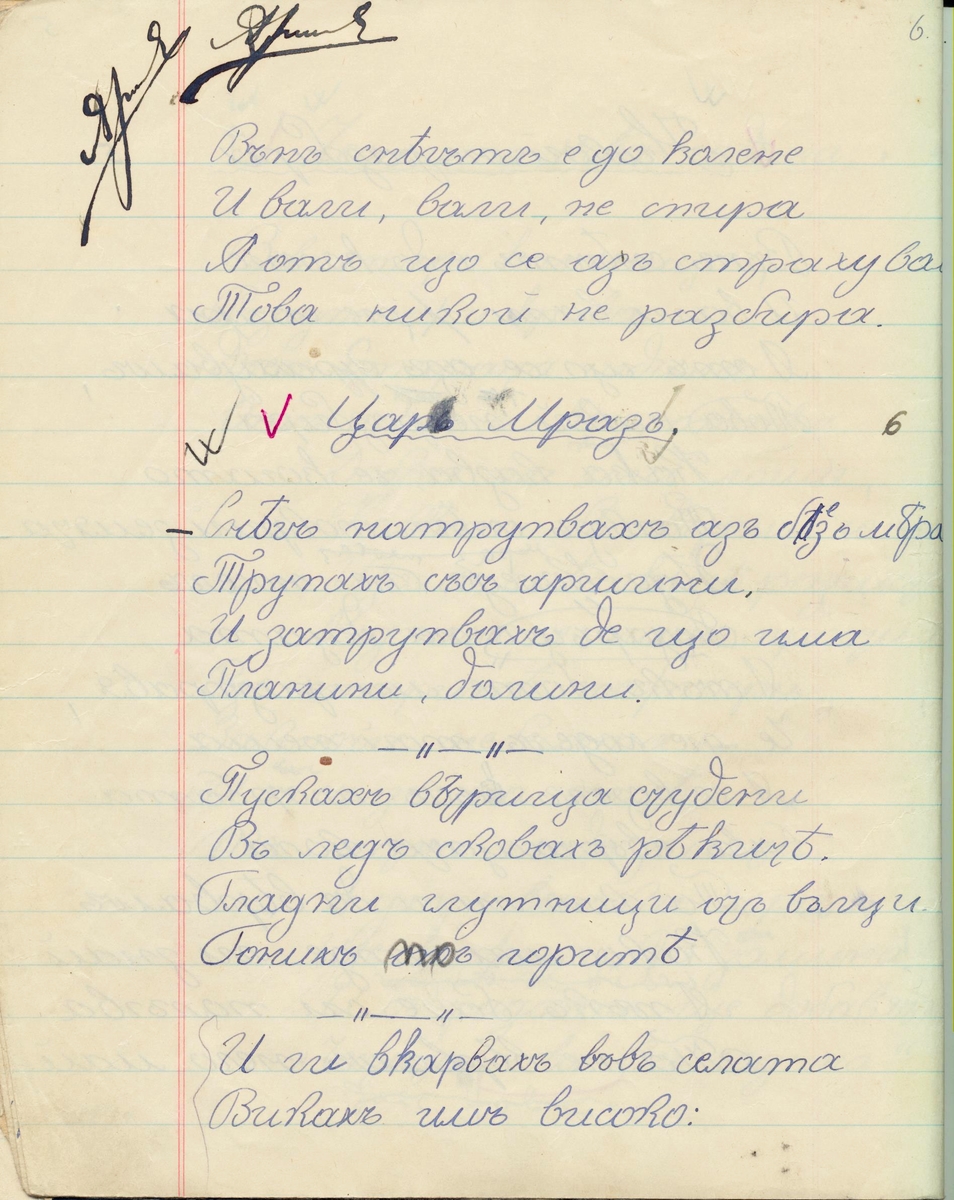 6.
Вънъ снѣгътъ е до колене
И вали, вали, не спира
А отъ що се азъ страхувам
Това никой не разбира.
Царь Мразъ.
6
Снѣгъ натрупвахъ азъ безъ мѣра
Трупахъ съсъ аршини,
И затрупвахъ де що има
Планини, долини.
—〃—〃—
Пускахъ вѣтрища студени
Въ ледъ сковахъ рѣкитѣ.
Гладни глутници отъ вълци.
Гонихъ горитѣ
—〃—〃—
И ги вкарвахъ въвъ селата
Викахъ имъ високо: